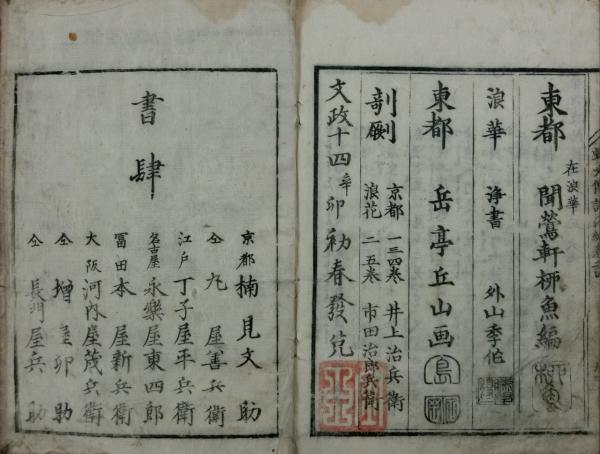 東都 在浪華 聞鶯軒柳魚編
浪華 浄書 外山季伯
東都 岳亭丘山画
剞劂 京都 一三四巻 井上治兵衛
浪花 二五巻 市田治郎兵衛
文政十四辛卯初春發兌
書肆
京都 楠見文助
仝 丸屋善兵衛
江戸 丁子屋平兵衛
名古屋 永樂屋東四郎
冨田 本屋新兵衛
大阪 河内屋茂兵衛
仝 増屋卯助
仝 長門屋兵助